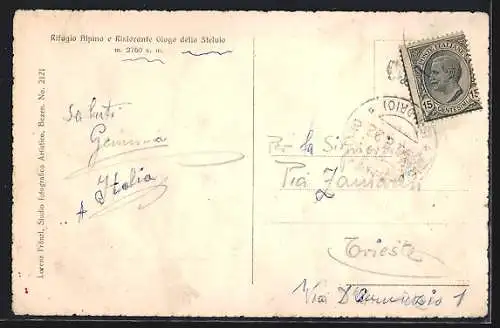 Rifugio Alpino e Ristorante Giogo dello Stelvio
m. 2760 s. m.
Lorenz Fränzl, Studio fotografico Artistico, Bozen. No. 2121
Saluti
Gemma
A Italia
Per la
Pia
Trieste
Via D'Annunzio 1
POSTE ITALIANE
15 CENTESIMI 15